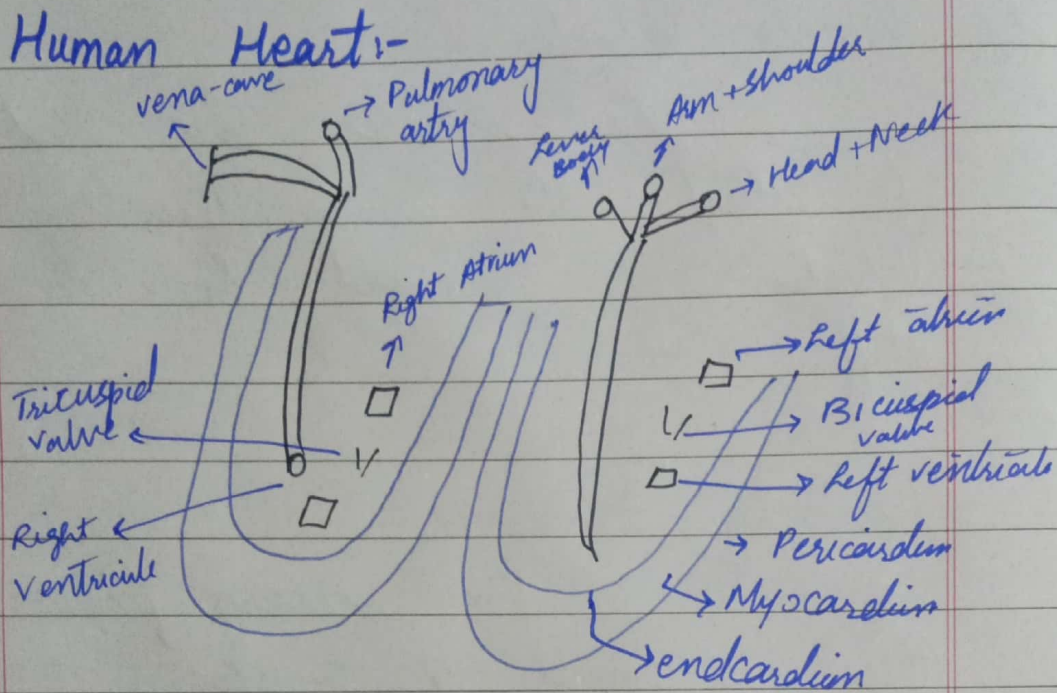 Human Heart:-
vena-cave
Pulmonary
artry
Lever
Body
Arm + shoulder
Head + Neck
Right Atrium
Left atrium
Tricuspid
valve
Bicuspid
valve
Left ventricle
Right
ventricule
Pericardium
Myocardium
endcardium